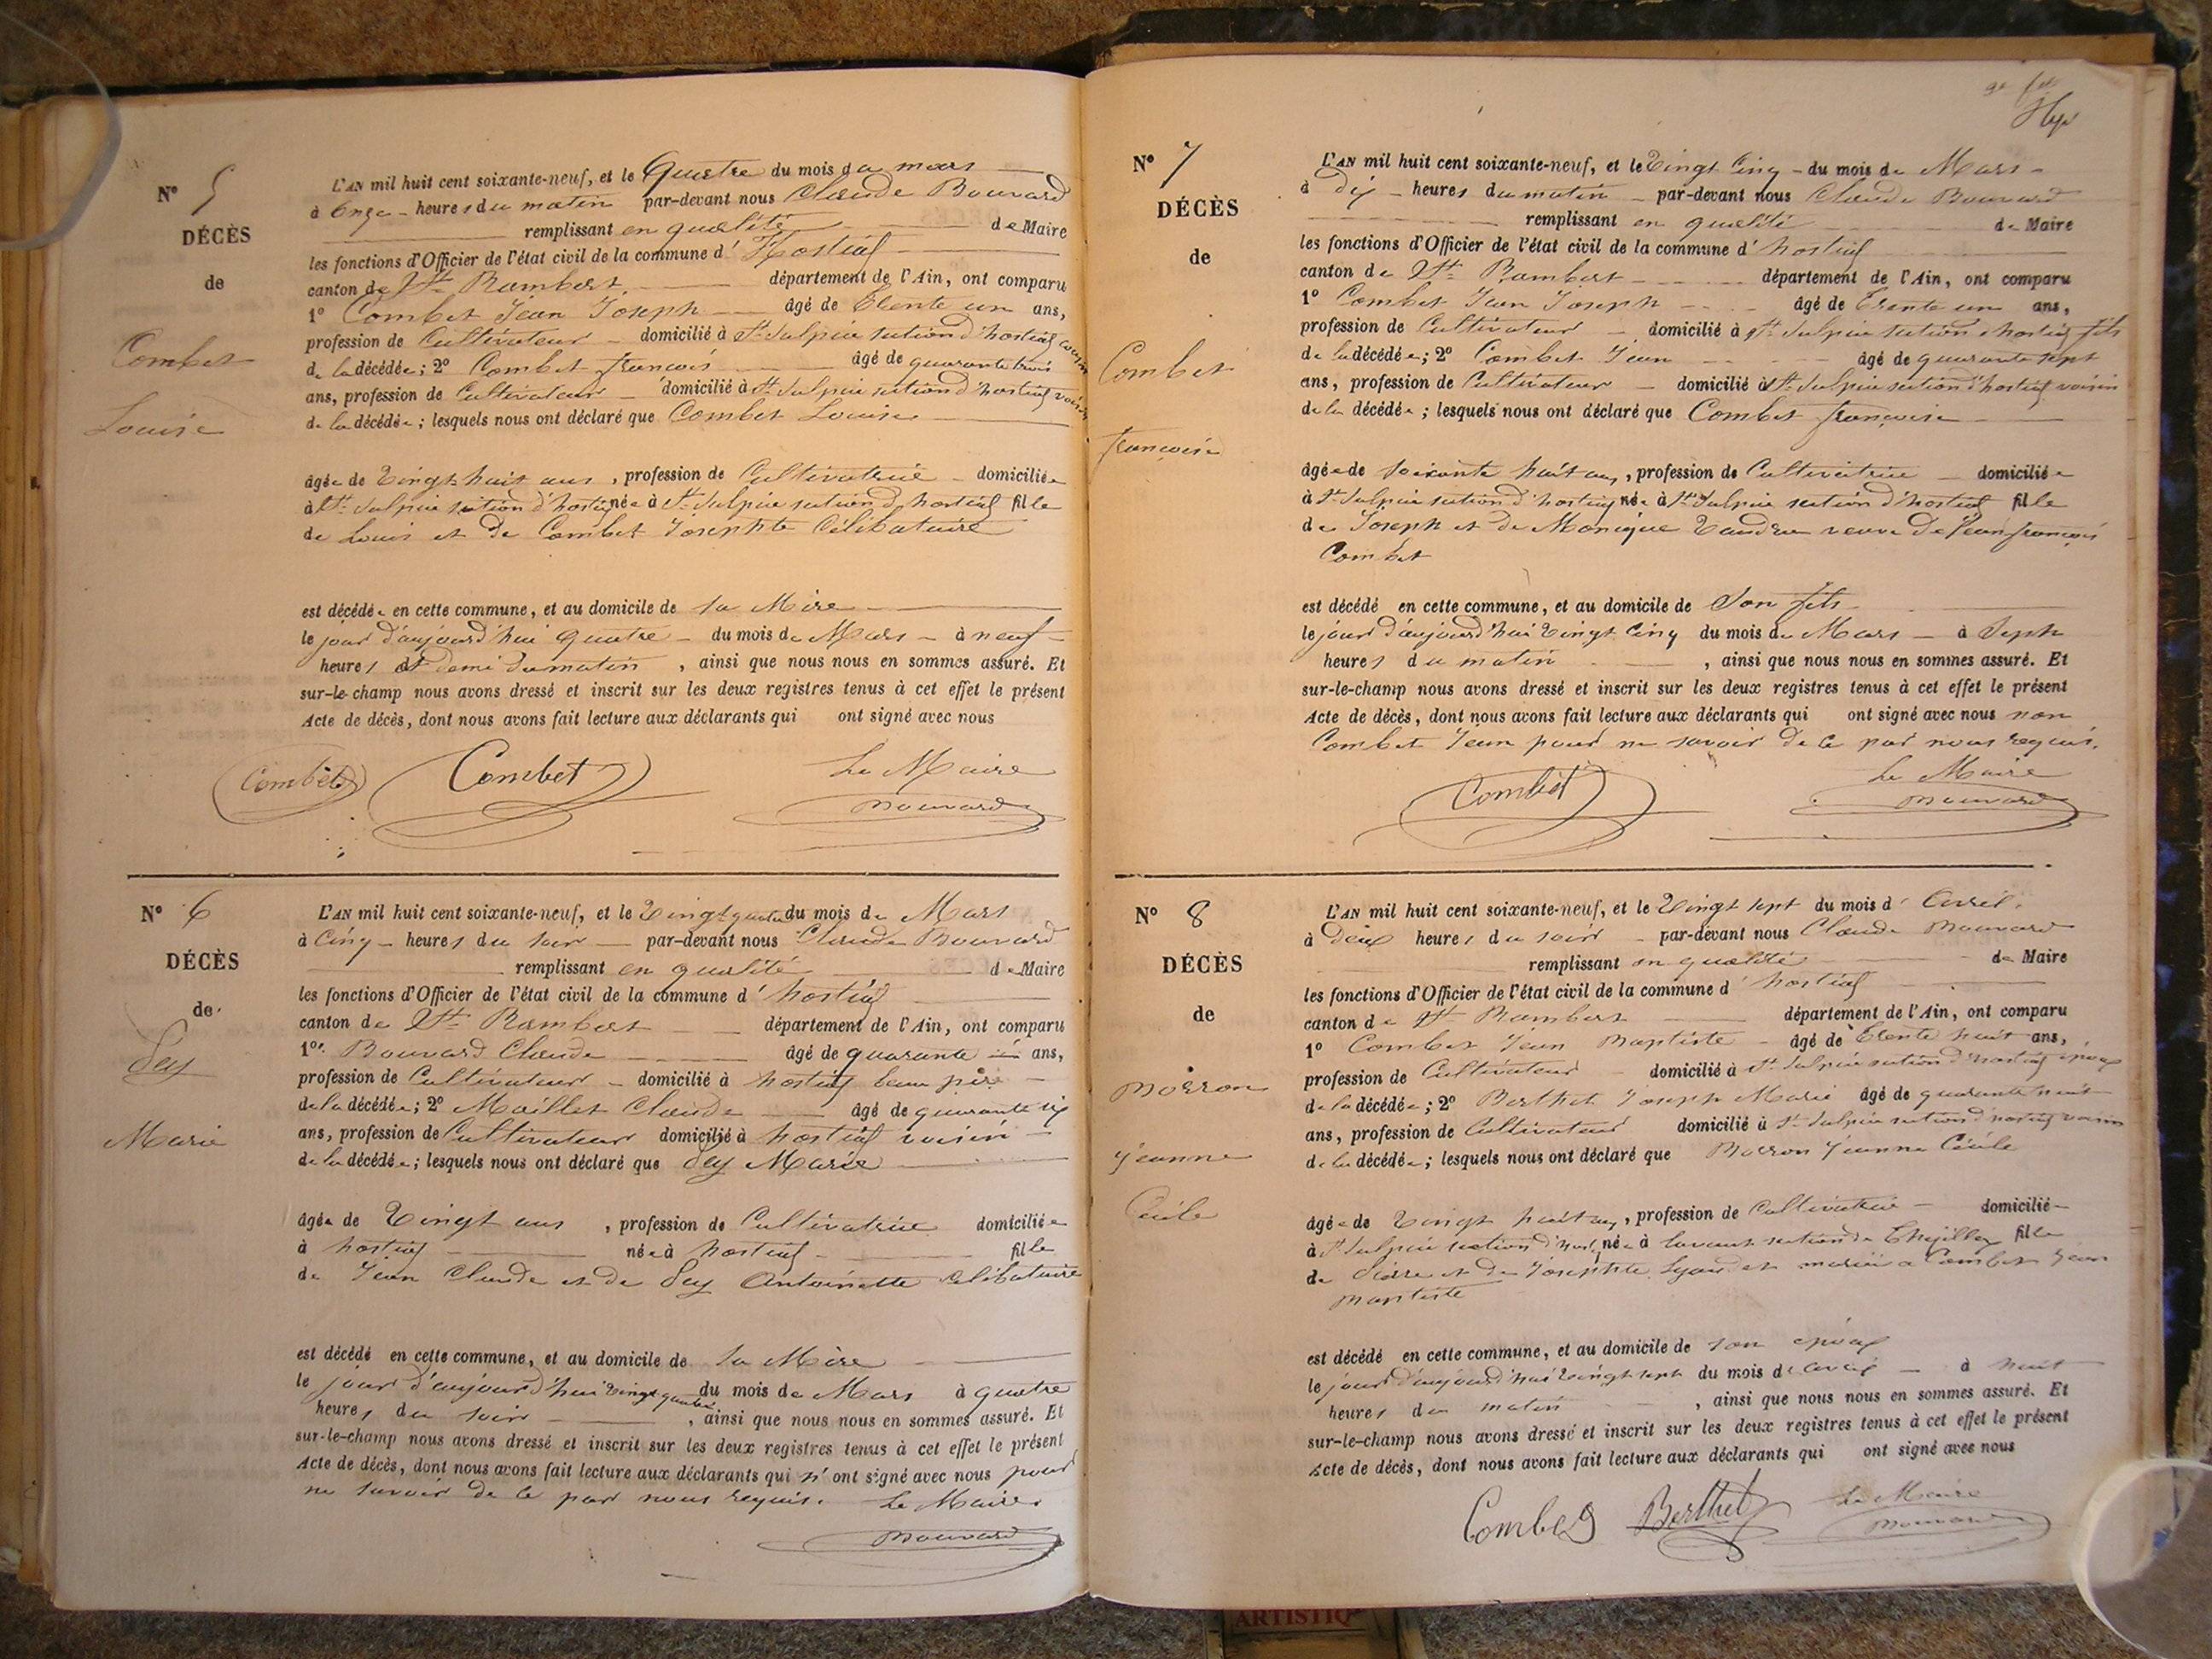 N° 5
DÉCÈS
de
Combet
Louise
L'AN mil huit cent soixante-neuf, et le Quatre du mois de mars
à Onze heures du matin par-devant nous Claude Bouvard
remplissant en qualité de Maire
les fonctions d'Officier de l'état civil de la commune d'Hostiaz
canton de St Rambert département de l'Ain, ont comparu
1° Combet Jean Joseph âgé de trente un ans,
profession de Cultivateur domicilié à St Sulpice section d'hostiaz cousin
de la décédée; 2° Combet françois âgé de quarante trois
ans, profession de Cultivateur domicilié à St Sulpice section d'hostiaz voisin
de la décédée; lesquels nous ont déclaré que Combet Louise
âgée de vingt huit ans, profession de Cultivatrice domiciliée
à St Sulpice section d'hostiaz née à St Sulpice section d'hostiaz fille
de Louis et de Combet Josephte Célibataire
est décédée en cette commune, et au domicile de sa Mère
le jour d'aujourd'hui quatre du mois de Mars à neuf
heures et demi du matin, ainsi que nous nous en sommes assuré. Et
sur-le-champ nous avons dressé et inscrit sur les deux registres tenus à cet effet le présent
Acte de décès, dont nous avons fait lecture aux déclarants qui ont signé avec nous
Combet Combet Le Maire
Bouvard
N° 6
DÉCÈS
de
Sey
Marie
L'AN mil huit cent soixante-neuf, et le vingt quatre du mois de Mars
à Cinq heures du soir par-devant nous Claude Bouvard
remplissant en qualité de Maire
les fonctions d'Officier de l'état civil de la commune d'hostiaz
canton de St Rambert département de l'Ain, ont comparu
1° Bouvard Claude âgé de quarante ans,
profession de Cultivateur domicilié à hostiaz beau père
de la décédée; 2° Maillet Claude âgé de quarante six
ans, profession de Cultivateur domicilié à hostiaz voisin
de la décédée; lesquels nous ont déclaré que Sey Marie
âgée de vingt ans, profession de Cultivatrice domiciliée
à hostiaz née à hostiaz fille
de Jean Claude et de Sey Antoinette célibataire
est décédé en cette commune, et au domicile de sa Mère
le jour d'aujourd'hui vingt quatre du mois de Mars à quatre
heures du soir, ainsi que nous nous en sommes assuré. Et
sur-le-champ nous avons dressé et inscrit sur les deux registres tenus à cet effet le présent
Acte de décès, dont nous avons fait lecture aux déclarants qui n'ont signé avec nous pour
ne savoir de ce par nous requis. Le Maire
Bouvard
N° 7
DÉCÈS
de
Combet
françoise
L'AN mil huit cent soixante-neuf, et le vingt Cinq du mois de Mars
à dix heures du matin par-devant nous Claude Bouvard
remplissant en qualité de Maire
les fonctions d'Officier de l'état civil de la commune d'hostiaz
canton de St Rambert département de l'Ain, ont comparu
1° Combet Jean Joseph âgé de trente un ans,
profession de Cultivateur domicilié à St Sulpice section d'hostiaz fils
de la décédée; 2° Combet Jean âgé de quarante sept
ans, profession de Cultivateur domicilié à St Sulpice section d'hostiaz voisin
de la décédée; lesquels nous ont déclaré que Combet françoise
âgée de soixante huit ans, profession de Cultivatrice domiciliée
à St Sulpice section d'hostiaz née à St Sulpice section d'hostiaz fille
de Joseph et de Monique veuve de Jean françois
Combet
est décédé en cette commune, et au domicile de Son fils
le jour d'aujourd'hui vingt cinq du mois de Mars à Sept
heures du matin, ainsi que nous nous en sommes assuré. Et
sur-le-champ nous avons dressé et inscrit sur les deux registres tenus à cet effet le présent
Acte de décès, dont nous avons fait lecture aux déclarants qui ont signé avec nous non
Combet Jean pour ne savoir de ce par nous requis.
Combet Le Maire
Bouvard
N° 8
DÉCÈS
de
Morron
Jeanne
Cécile
L'AN mil huit cent soixante-neuf, et le vingt sept du mois d'Avril
à deux heures du soir par-devant nous Claude Bouvard
remplissant en qualité de Maire
les fonctions d'Officier de l'état civil de la commune d'hostiaz
canton de St Rambert département de l'Ain, ont comparu
1° Combet Jean Baptiste âgé de trente huit ans,
profession de Cultivateur domicilié à St Sulpice section d'hostiaz époux
de la décédée; 2° Berthet Joseph Marie âgé de quarante
ans, profession de Cultivateur domicilié à St Sulpice section d'hostiaz voisin
de la décédée; lesquels nous ont déclaré que Morron Jeanne Cécile
âgée de vingt huit ans, profession de Cultivatrice domiciliée
à St Sulpice section d'host. née à Lavant section de fille
de Pierre et de Josephte et mariée à Combet Jean
Baptiste
est décédé en cette commune, et au domicile de son époux
le jour d'aujourd'hui vingt sept du mois d'avril à huit
heures du matin, ainsi que nous nous en sommes assuré. Et
sur-le-champ nous avons dressé et inscrit sur les deux registres tenus à cet effet le présent
Acte de décès, dont nous avons fait lecture aux déclarants qui ont signé avec nous
Combet Berthet Le Maire
Bouvard
ARTISTIQ